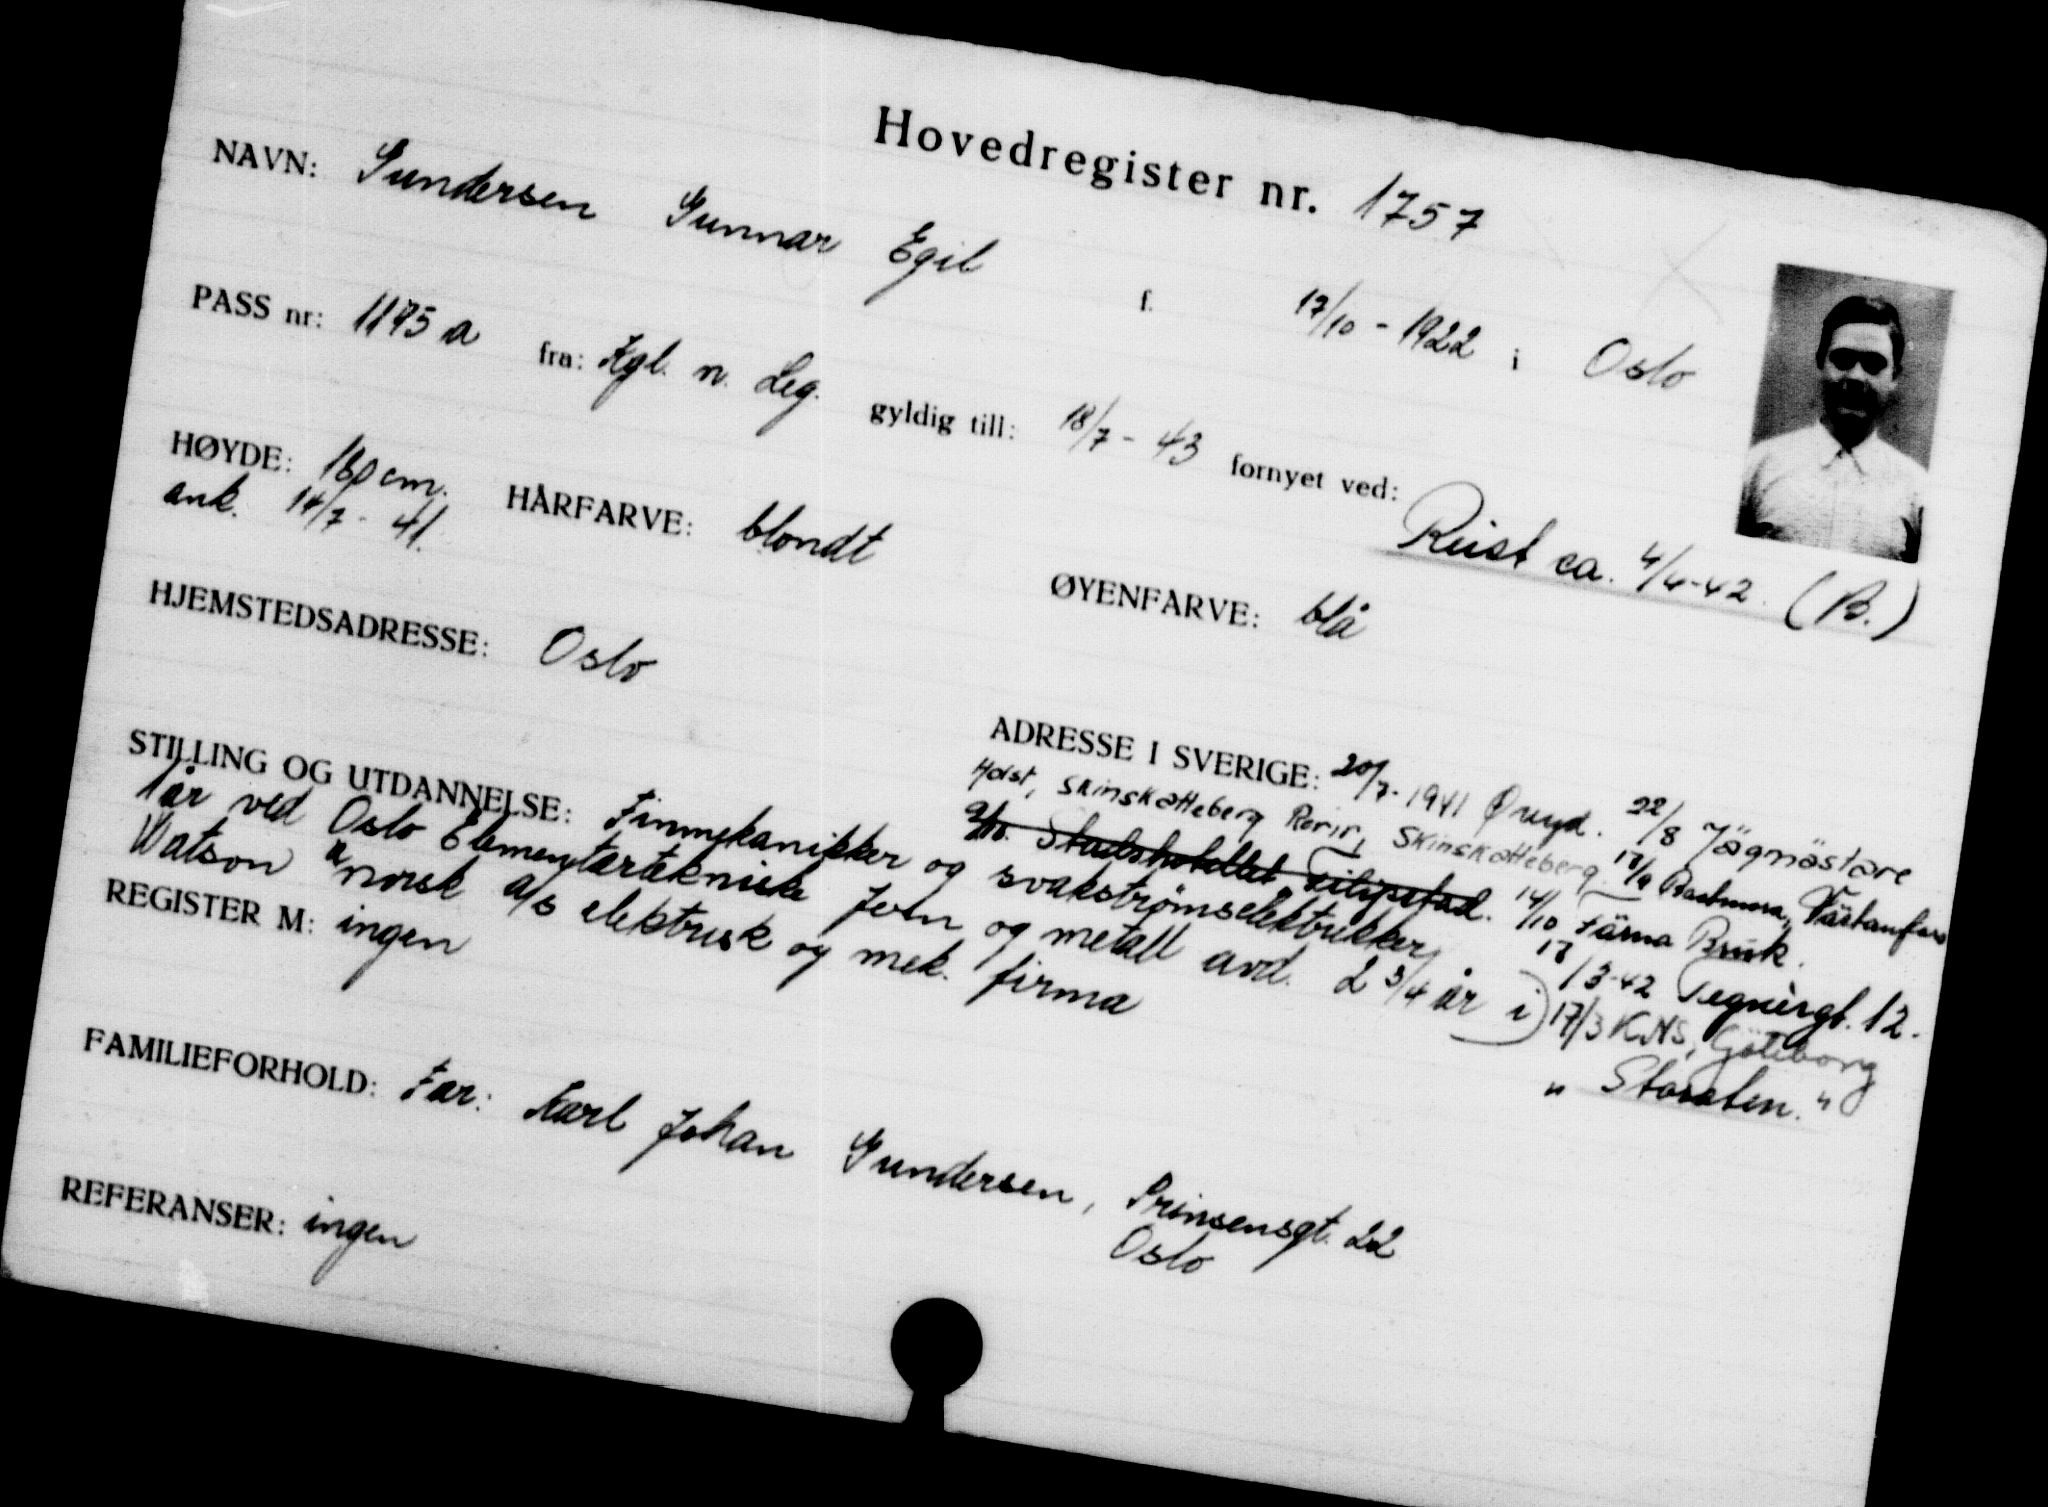 Hovedregister nr. 1757
NAVN: Gundersen Gunnar Egil f. 17/10 - 1922 i Oslo
PASS nr: 1195 a fra: Kgl. n. Leg. gyldig till: 18/7 - 43 fornyet ved:
Reist ca. 4/6-42. (B.)
HØYDE: 180 cm. HÅRFARVE: blondt ØYENFARVE: blå
ank. 14/7 - 41.
HJEMSTEDSADRESSE: Oslo
ADRESSE I SVERIGE: 20/7 - 1941 Øreryd. 22/8 Jägmästare
Holst, Skinskatteberg Rorir, Skinskatteberg. 17/9 Bastmora, Västanfors
9/10. Stadshotellet, Filipstad. 14/10 Färna Bruk.
17/3-42 Tegnérgt. 12.
17/3 KNS, Göteborg
" Staraten. "
STILLING OG UTDANNELSE: Finmekanikker og svakstrømselektrikker
1 år ved Oslo Elementærtekniske Jern og metall avd. 2 3/4 år i
Watson norsk a/s elektrisk og mek. firma
REGISTER M: ingen
FAMILIEFORHOLD: Far: Karl Johan Gundersen, Prinsensgt. 22
Oslo
REFERANSER: ingen